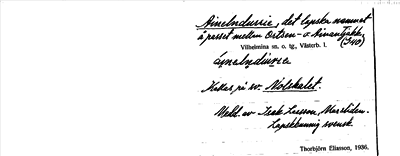 Ainelndurrie, det lapska namnet
å passet mellan Ortsen- o. Ainantjåkk.
(J40)
Vilhelmina sn. o. tg., Västerb. l.
Kallas på sv. Molskalet.
Medd. av Isak Larsson, Marsliden.
Lapskkunnig svensk.
Thorbjörn Eliasson, 1936.